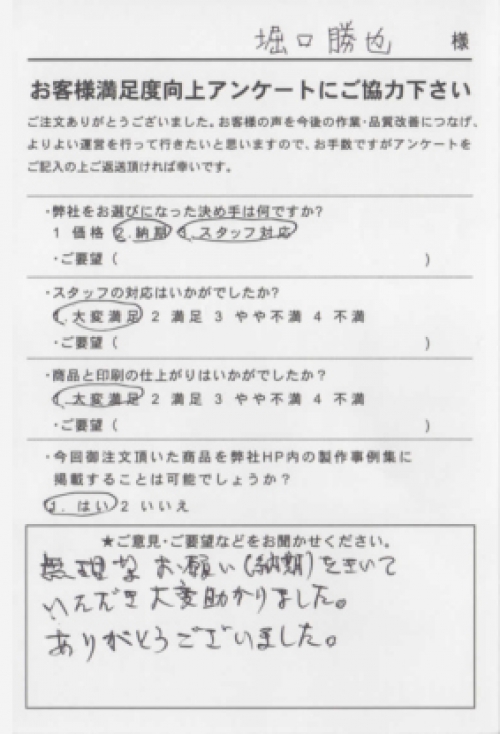 堀口勝也 様
お客様満足度向上アンケートにご協力下さい
ご注文ありがとうございました。お客様の声を今後の作業・品質改善につなげ、
よりよい運営を行って行きたいと思いますので、お手数ですがアンケートを
ご記入の上ご返送頂ければ幸いです。
・弊社をお選びになった決め手は何ですか?
1 価格 2.納期 3.スタッフ対応
・ご要望( )
・スタッフの対応はいかがでしたか?
1.大変満足 2 満足 3 やや不満 4 不満
・ご要望( )
・商品と印刷の仕上がりはいかがでしたか?
1.大変満足 2 満足 3 やや不満 4 不満
・ご要望( )
・今回御注文頂いた商品を弊社HP内の製作事例集に
掲載することは可能でしょうか?
1. はい 2 いいえ
★ご意見・ご要望などをお聞かせください。
無理なお願い(納期)をきいて
いただき大変助かりました。
ありがとうございました。